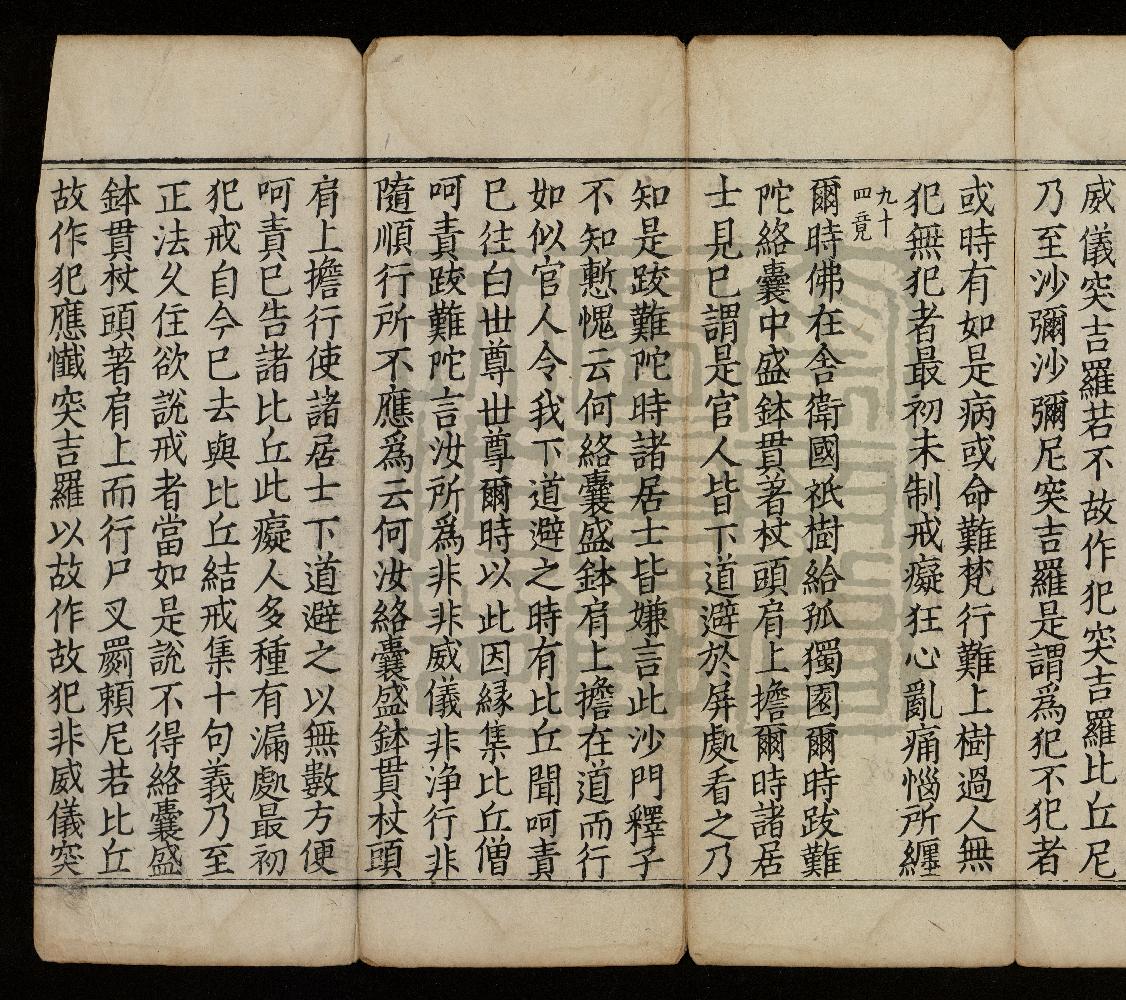 威儀突吉羅若不故作犯突吉羅比丘尼
乃至沙彌沙彌尼突吉羅是謂爲犯不犯者
或時有如是病或命難梵行難上樹過人無
犯無犯者最初未制戒癡狂心亂痛惱所纏
九十
四竟
爾時佛在舍衛國祇樹給孤獨園爾時跋難
陀絡囊中盛鉢貫著杖頭肩上擔爾時諸居
士見巳謂是官人皆下道避於屏處看之乃
知是跋難陀時諸居士皆嫌言此沙門釋子
不知慙愧云何絡囊盛鉢肩上擔在道而行
如似官人令我下道避之時有比丘聞呵責
巳往白世尊世尊爾時以此因緣集比丘僧
呵責跋難陀言汝所爲非非威儀非淨行非
隨順行所不應爲云何汝絡囊盛鉢貫杖頭
肩上擔行使諸居士下道避之以無數方便
呵責巳告諸比丘此癡人多種有漏處最初
犯戒自今巳去與比丘結戒集十句義乃至
正法久住欲說戒者當如是說不得絡囊盛
鉢貫杖頭著肩上而行尸叉罽賴尼若比丘
故作犯應懺突吉羅以故作故犯非威儀突